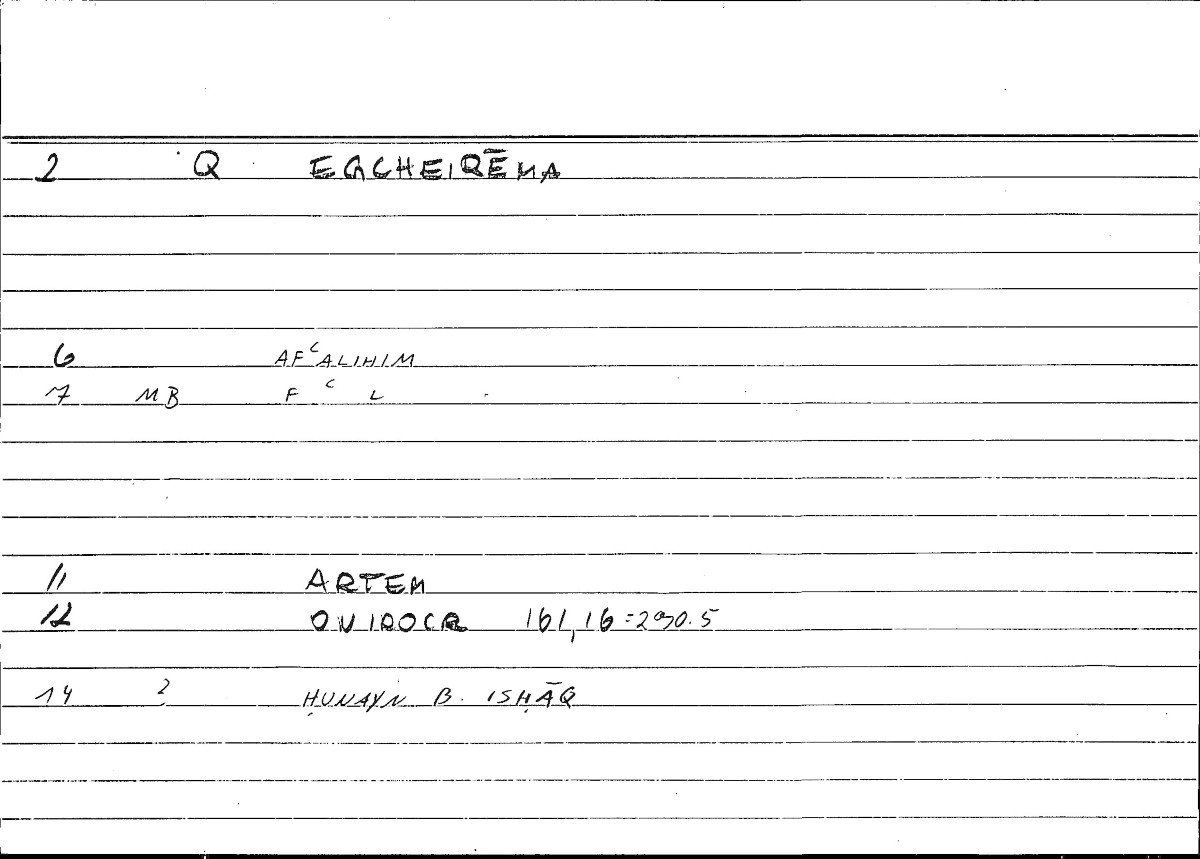 2 Q EGCHEIRĒMA
6 AFʿALIHIM
7 MB F ʿ L
11 ARTEM
12 ONIROCR 161,16=290.5
14 ? ḤUNAYN B. ISḤĀQ